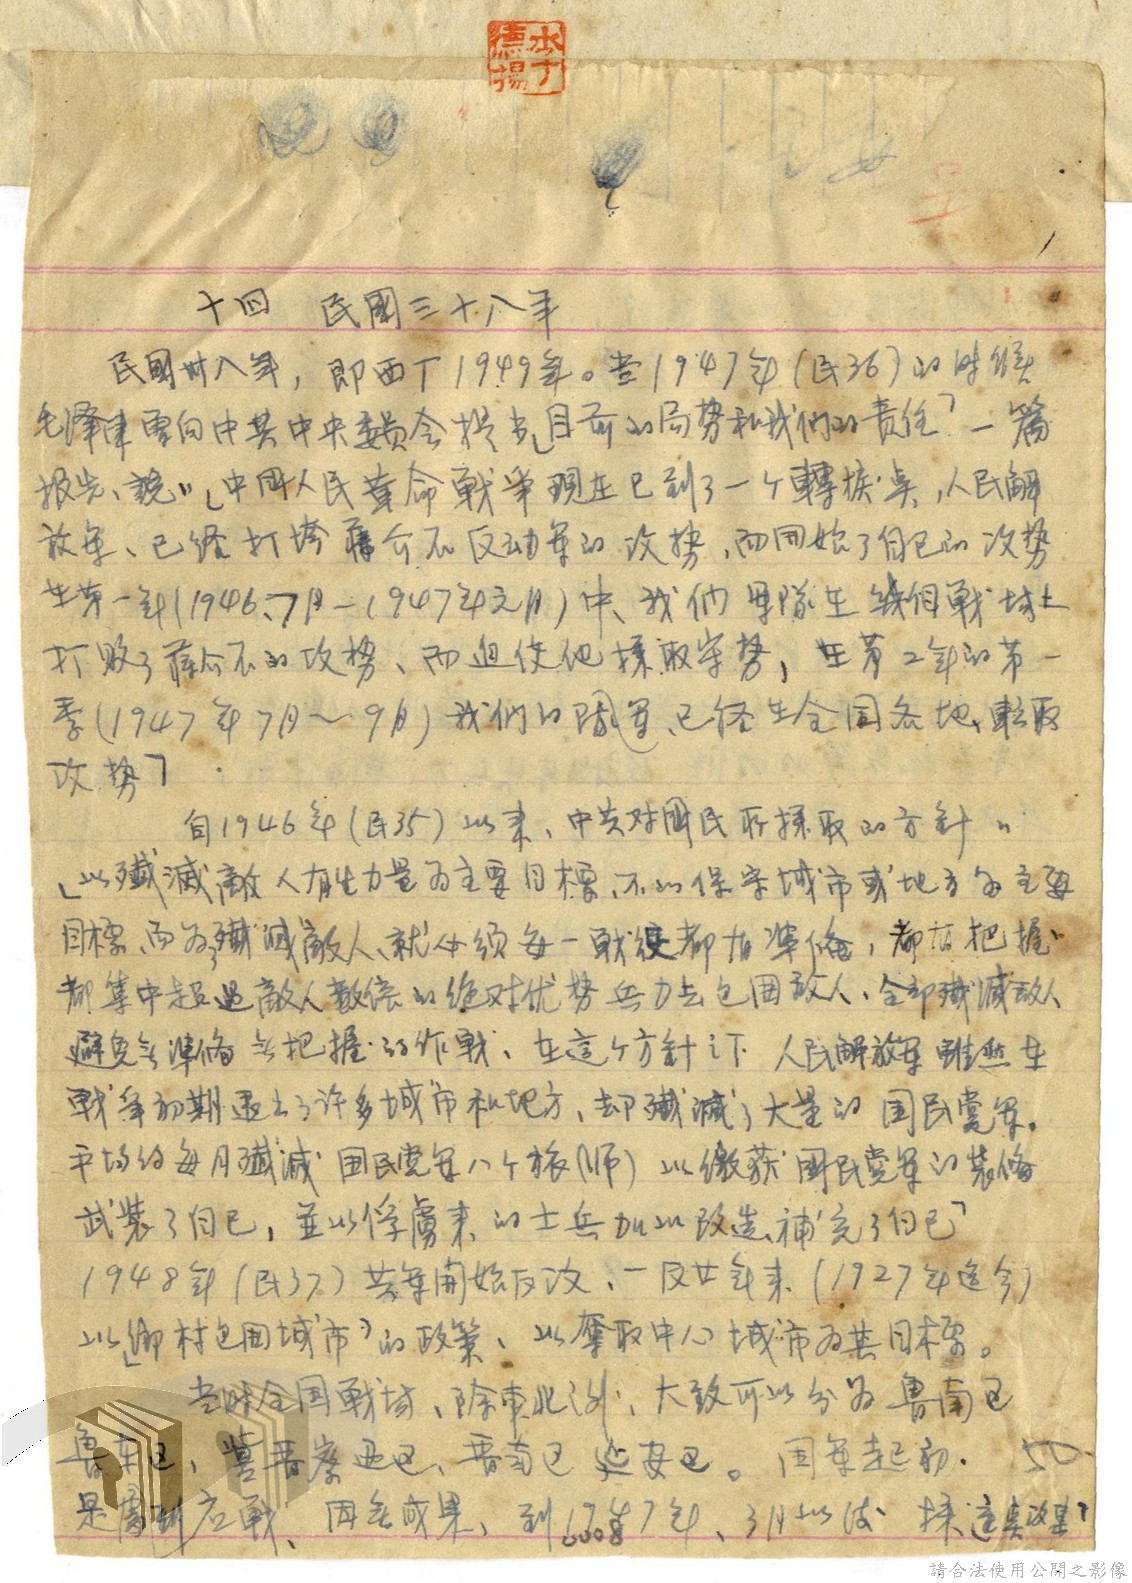 水丁
德揚
十四 民國三十八年
民國卅八年，即西丁1949年。當1947年(民36)的时候
毛澤東曾向中共中央委員会提出「目前的局势和我們的責任」一篇
报告、說"「中國人民革命戰爭現在已到了一个轉捩奌,人民解
放军、已経打垮蔣介石反动军的攻势、而開始了自己的攻势
在第一年(1946、7月-1947年元月)中、我们軍隊在幾個戰場上
打敗了蔣介石的攻势、而迫使他採取守势，在第2年的第一
季(1947年7月~9月)我們的隊伍、已経在全国各地、轉取
攻势」
自1946年(民35)以来、中共对國民所採取的方針"
「以殲滅敵人有生力量为主要目標、不以保守城市或地方为主要
目標、而为殲滅敵人、就必須每一戰役都有準備，都有把握"
都集中超过敵人数倍的絶对优势兵力去包囲敌人、全部殲滅敌人
避免無準備無把握的作戰、在這个方針之下人民解放军雖然在
戰爭初期退出了许多城市和地方、却殲滅了大量的国民党军。
平均約每月殲滅国民党军八个旅(师)以繳获國民党军的装備
武装了自己，並以俘虜来的士兵加以改造、補充了自己」
1948年(民37)共军開始反攻、一反廿年来(1927年迄今)
以「鄉村包囲城市」的政策、以奪取中心城市为其目標。
当时全国戰场、除東北外，大致可以分为魯南区
魯东区，冀晋察边区、晋南区延安区。国军起初.50
是應战、因無成果、到1947年、3月以後 採
0008
請合法使用公開之影像